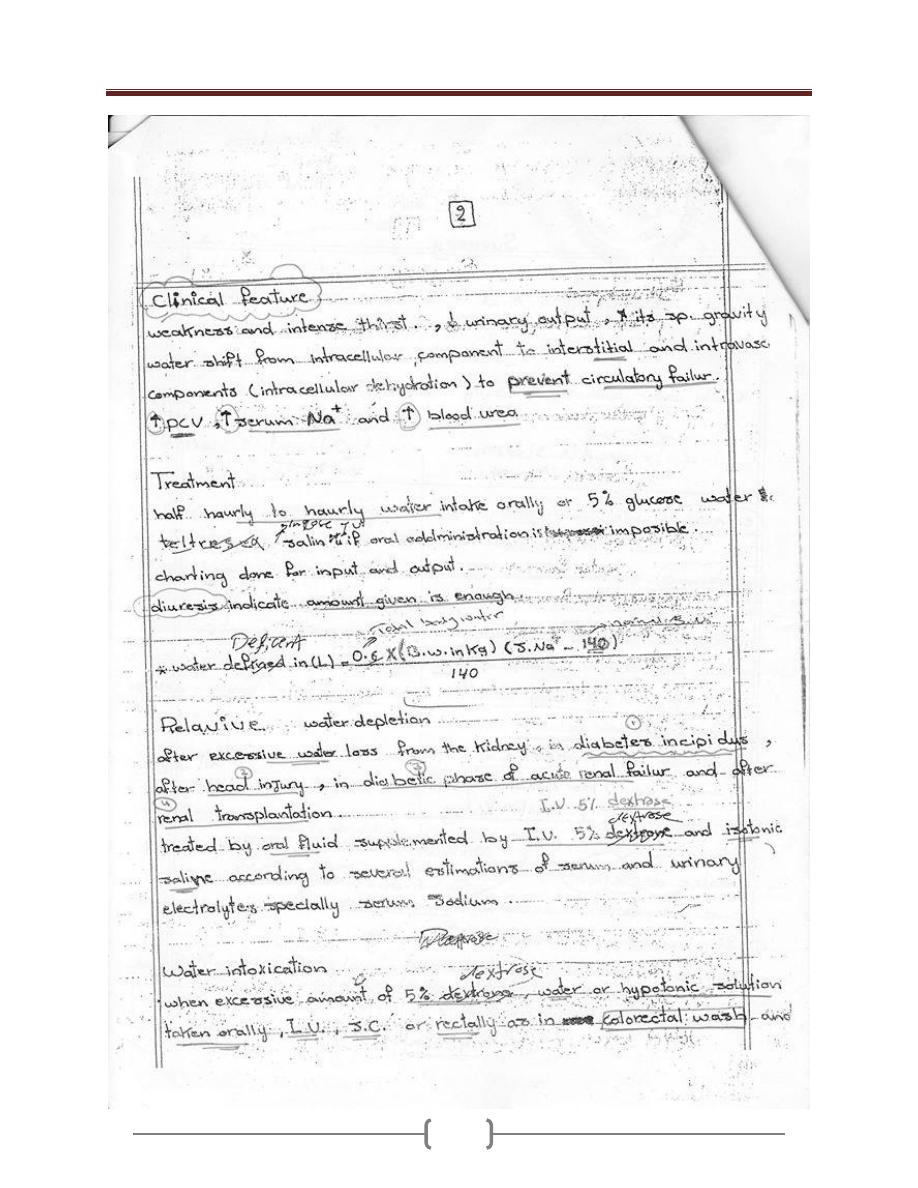 2
Clinical feature
weakness and intense thirst. , ↓ urinary output , ↑ its sp. gravity
water shift from intracellular component to interstitial and intravasc
components (intracellular dehydration) to prevent circulatory failur.
↑ PCV , ↑ serum Na+ and ↑ blood urea
Treatment
half haurly to haurly water intake orally or 5% glucose water
salin if oral addministration is imposible.
charting done for input and output.
diuresis indicate amount given is enough.
Deficit Total body water normal
* water defined in (L) = 0.6 X (B.w. in Kg) (S.Na+ - 140)
140
Relavive water depletion
after excessive water loss from the kidney, in diabetes incipidus ,
after head injury , in diabetic phase of acute renal failur and after
renal transplantation I.V. 5% dextrose
dextrose
treated by oral fluid supplemented by I.V. 5% dextrone and isotonic
saline according to several estimations of serum and urinary
electrolytes specially serum sodium .
Water intoxication dextrose
when excessive amount of 5% dextrone, water or hypotonic solution
taken orally , I.V. , S.C. or rectally as in colorectal wash and